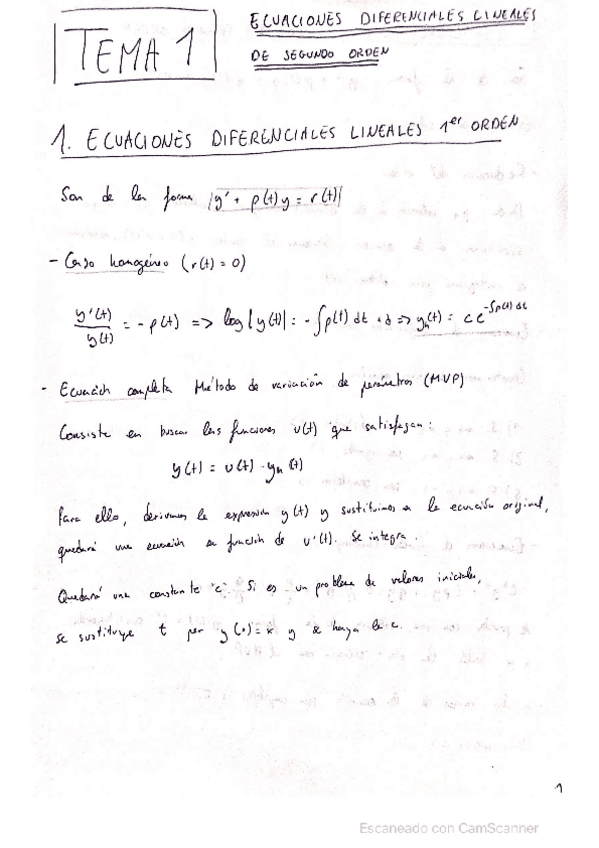 TEMA 1
ECUACIONES DIFERENCIALES LINEALES
DE SEGUNDO ORDEN
1. ECUACIONES DIFERENCIALES LINEALES 1er ORDEN
Son de la forma |y' + p(t)y = r(t)|
- Caso homogéneo (r(t) = 0)
y'(t)/y(t) = - p(t) => log|y(t)| = - ∫p(t) dt + d => yh(t) = c e^-∫p(t) dt
- Ecuación completa Método de variación de parámetros (MVP)
Consiste en buscar las funciones v(t) que satisfagan:
y(t) = v(t) · yh(t)
Para ello, derivamos la expresión y(t) y sustituimos en la ecuación original,
quedará una ecuación en función de v'(t). Se integra.
Quedará una constante "c". Si es un problema de valores iniciales,
se sustituye t por y(·)=* y se haya la c.
1
Escaneado con CamScanner